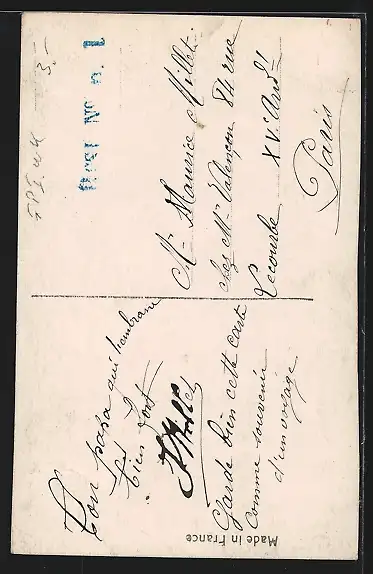 Ton papa qui t'embrasse
bien fort
Garde bien cette carte
comme souvenir
d'un voyage
Mr Maurice Millet
chez Mr Valençon 84 rue
Lecourbe XVe Ardt
Paris
Made in France
No. 1
3.-